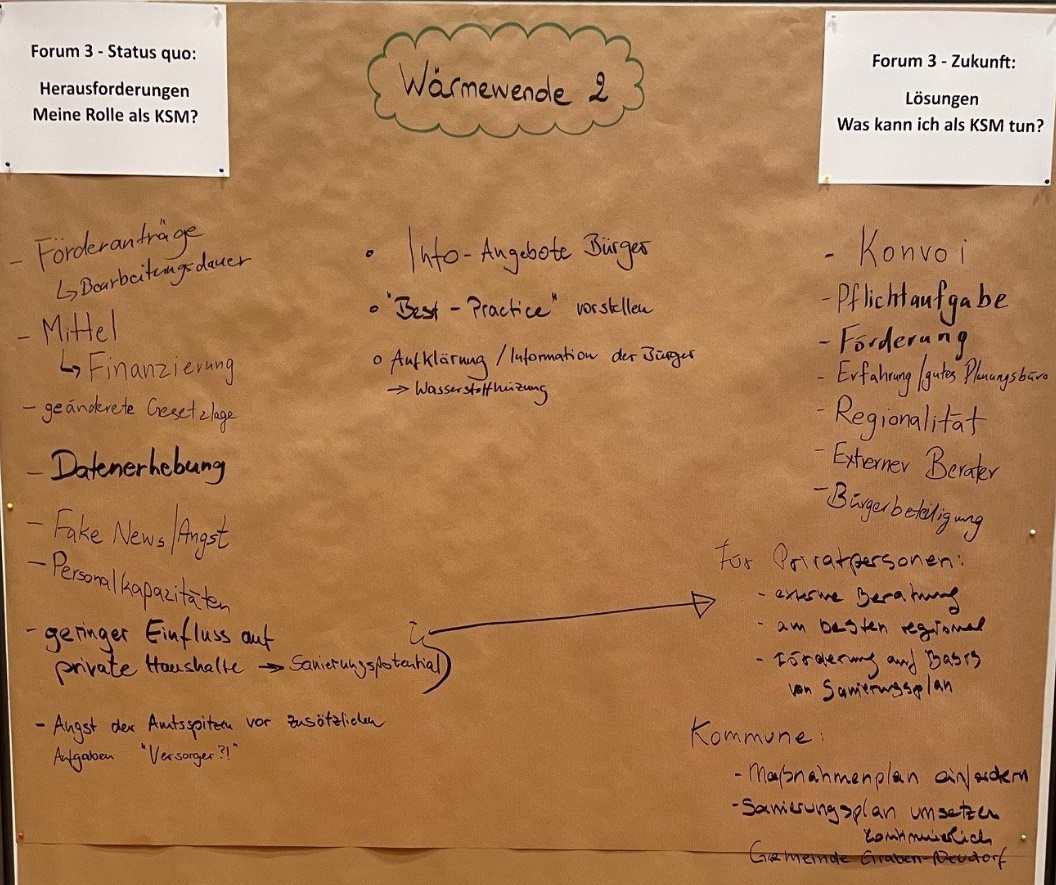 Forum 3 - Status quo:
Herausforderungen
Meine Rolle als KSM?
Wärmewende 2
Forum 3 - Zukunft:
Lösungen
Was kann ich als KSM tun?
- Förderanträge
↳ Bearbeitungsdauer
- Mittel
↳ Finanzierung
- geänderte Gesetzlage
- Datenerhebung
- Fake News/Angst
- Personalkapazitäten
- geringer Einfluss auf
private Haushalte → Sanierungspotential
- Angst der Amtsspitzen vor zusätzlichen
Aufgaben "Versorger?!"
• Info-Angebote Bürger
• "Best-Practice" vorstellen
• Aufklärung/Information der Bürger
→ Wasserstoffheizung
- Konvoi
- Pflichtaufgabe
- Förderung
- Erfahrung/gutes Planungsbüro
- Regionalität
- Externer Berater
- Bürgerbeteiligung
Für Privatpersonen:
- externe Beratung
- am besten regional
- Förderung auf Basis
von Sanierungsplan
Kommune:
- Maßnahmenplan einfordern
- Sanierungsplan umsetzen
kontinuierlich
Gemeinde Graben-Neudorf